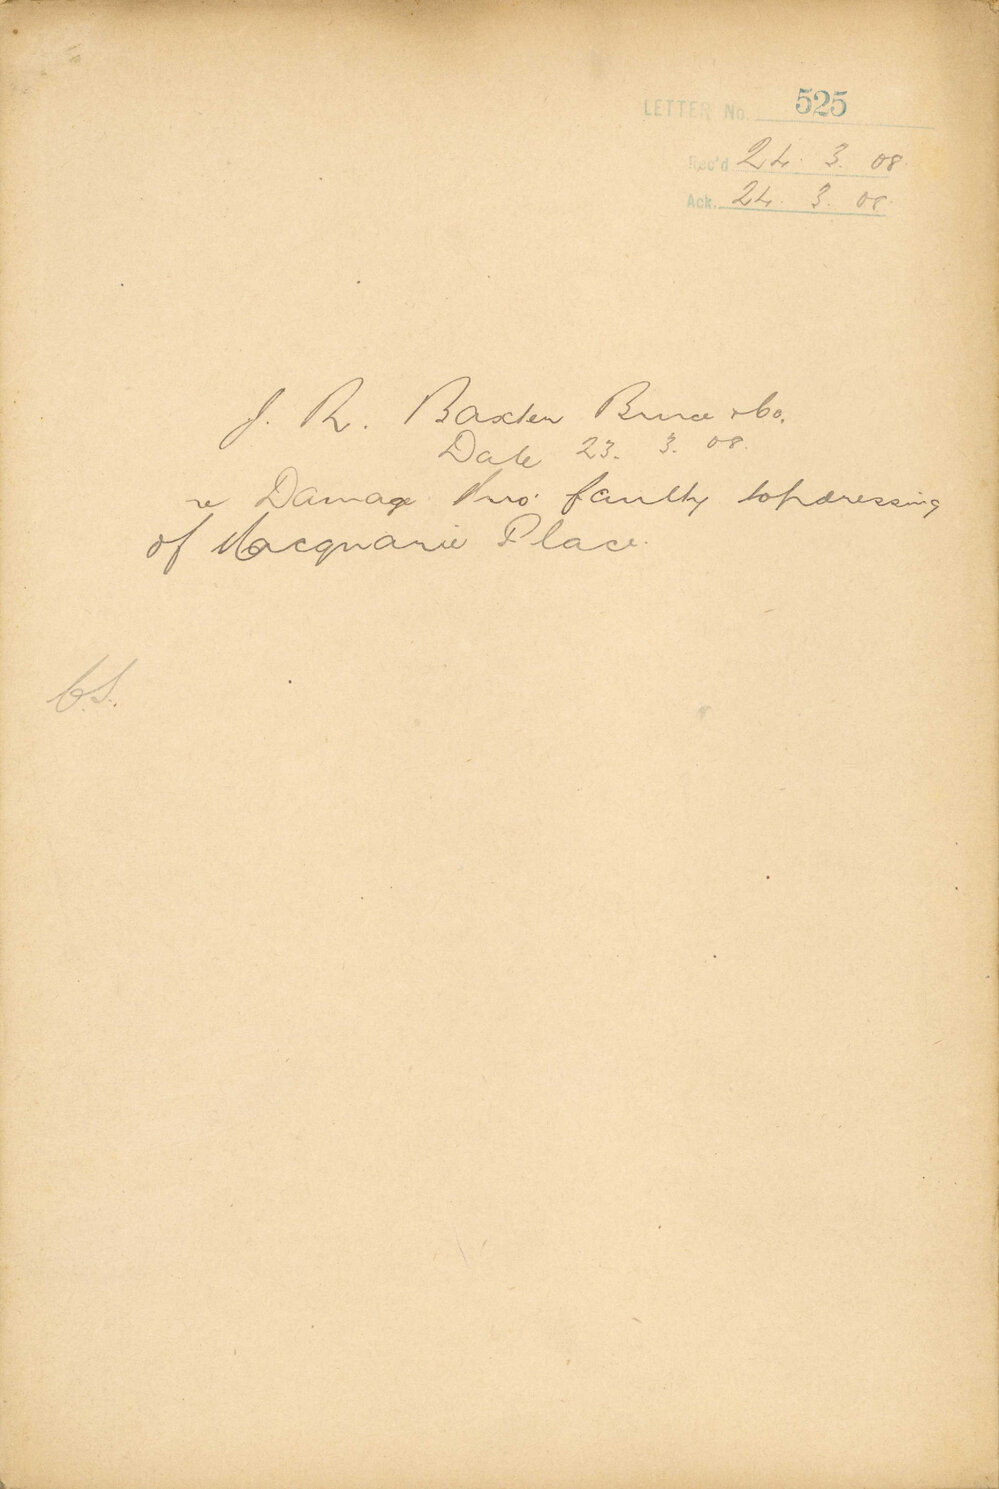 LETTER No. 525
Rec'd 24. 3. 08.
Ack. 24. 3. 08.
J. R. Baxter Bruce & Co.
Date 23. 3. 08.
re Damage thro' faulty topdressing
of Macquarie Place.
C.S.